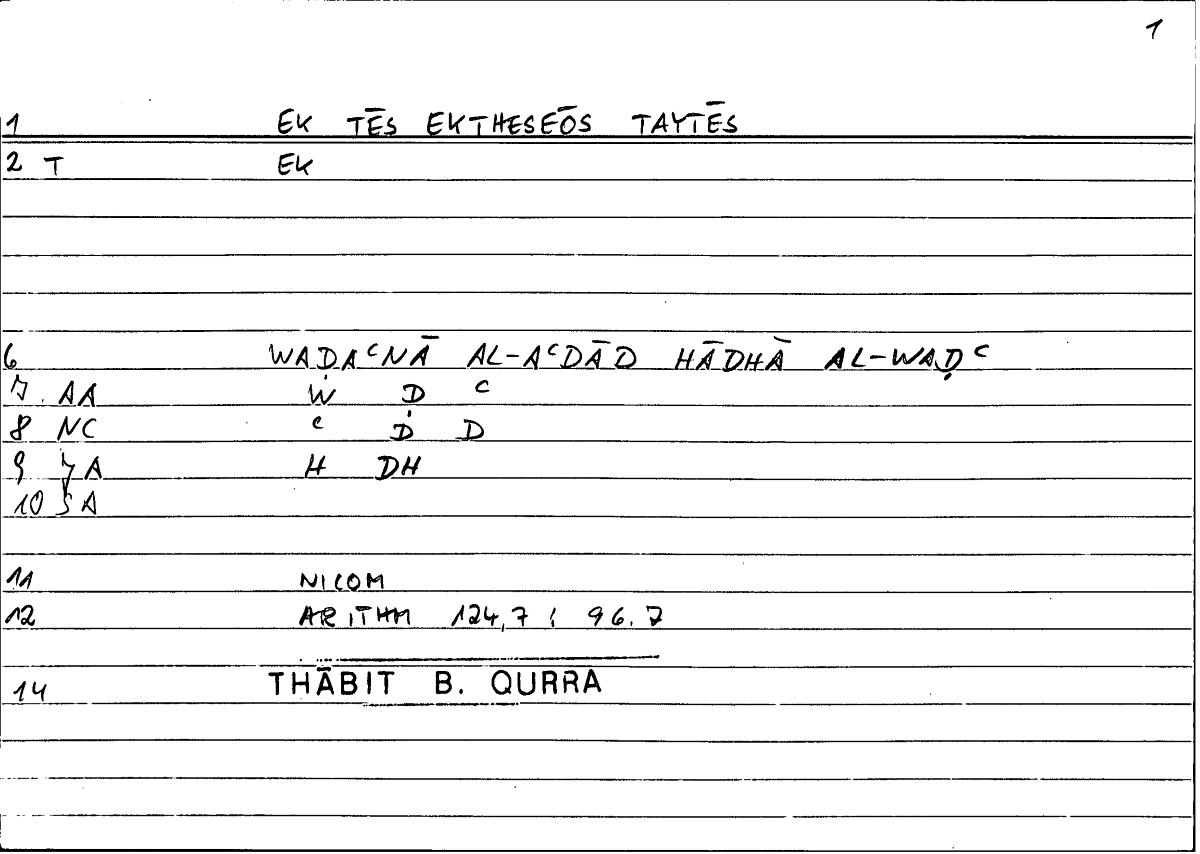 1
1 EK TĒS EKTHESEŌS TAYTĒS
2 T EK
6 WAḌAᶜNĀ AL-AᶜDĀD HĀDHĀ AL-WAḌᶜ
7. AA W Ḍ ᶜ
8 NC ᶜ D D
9 7A H DH
10 SA
11 NICOM
12 ARITHM 124,7 ; 96.7
14 THĀBIT B. QURRA